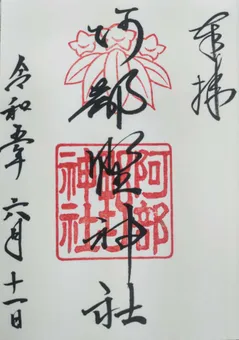 奉拝
阿部野神社
阿部野神社
令和五年六月十一日